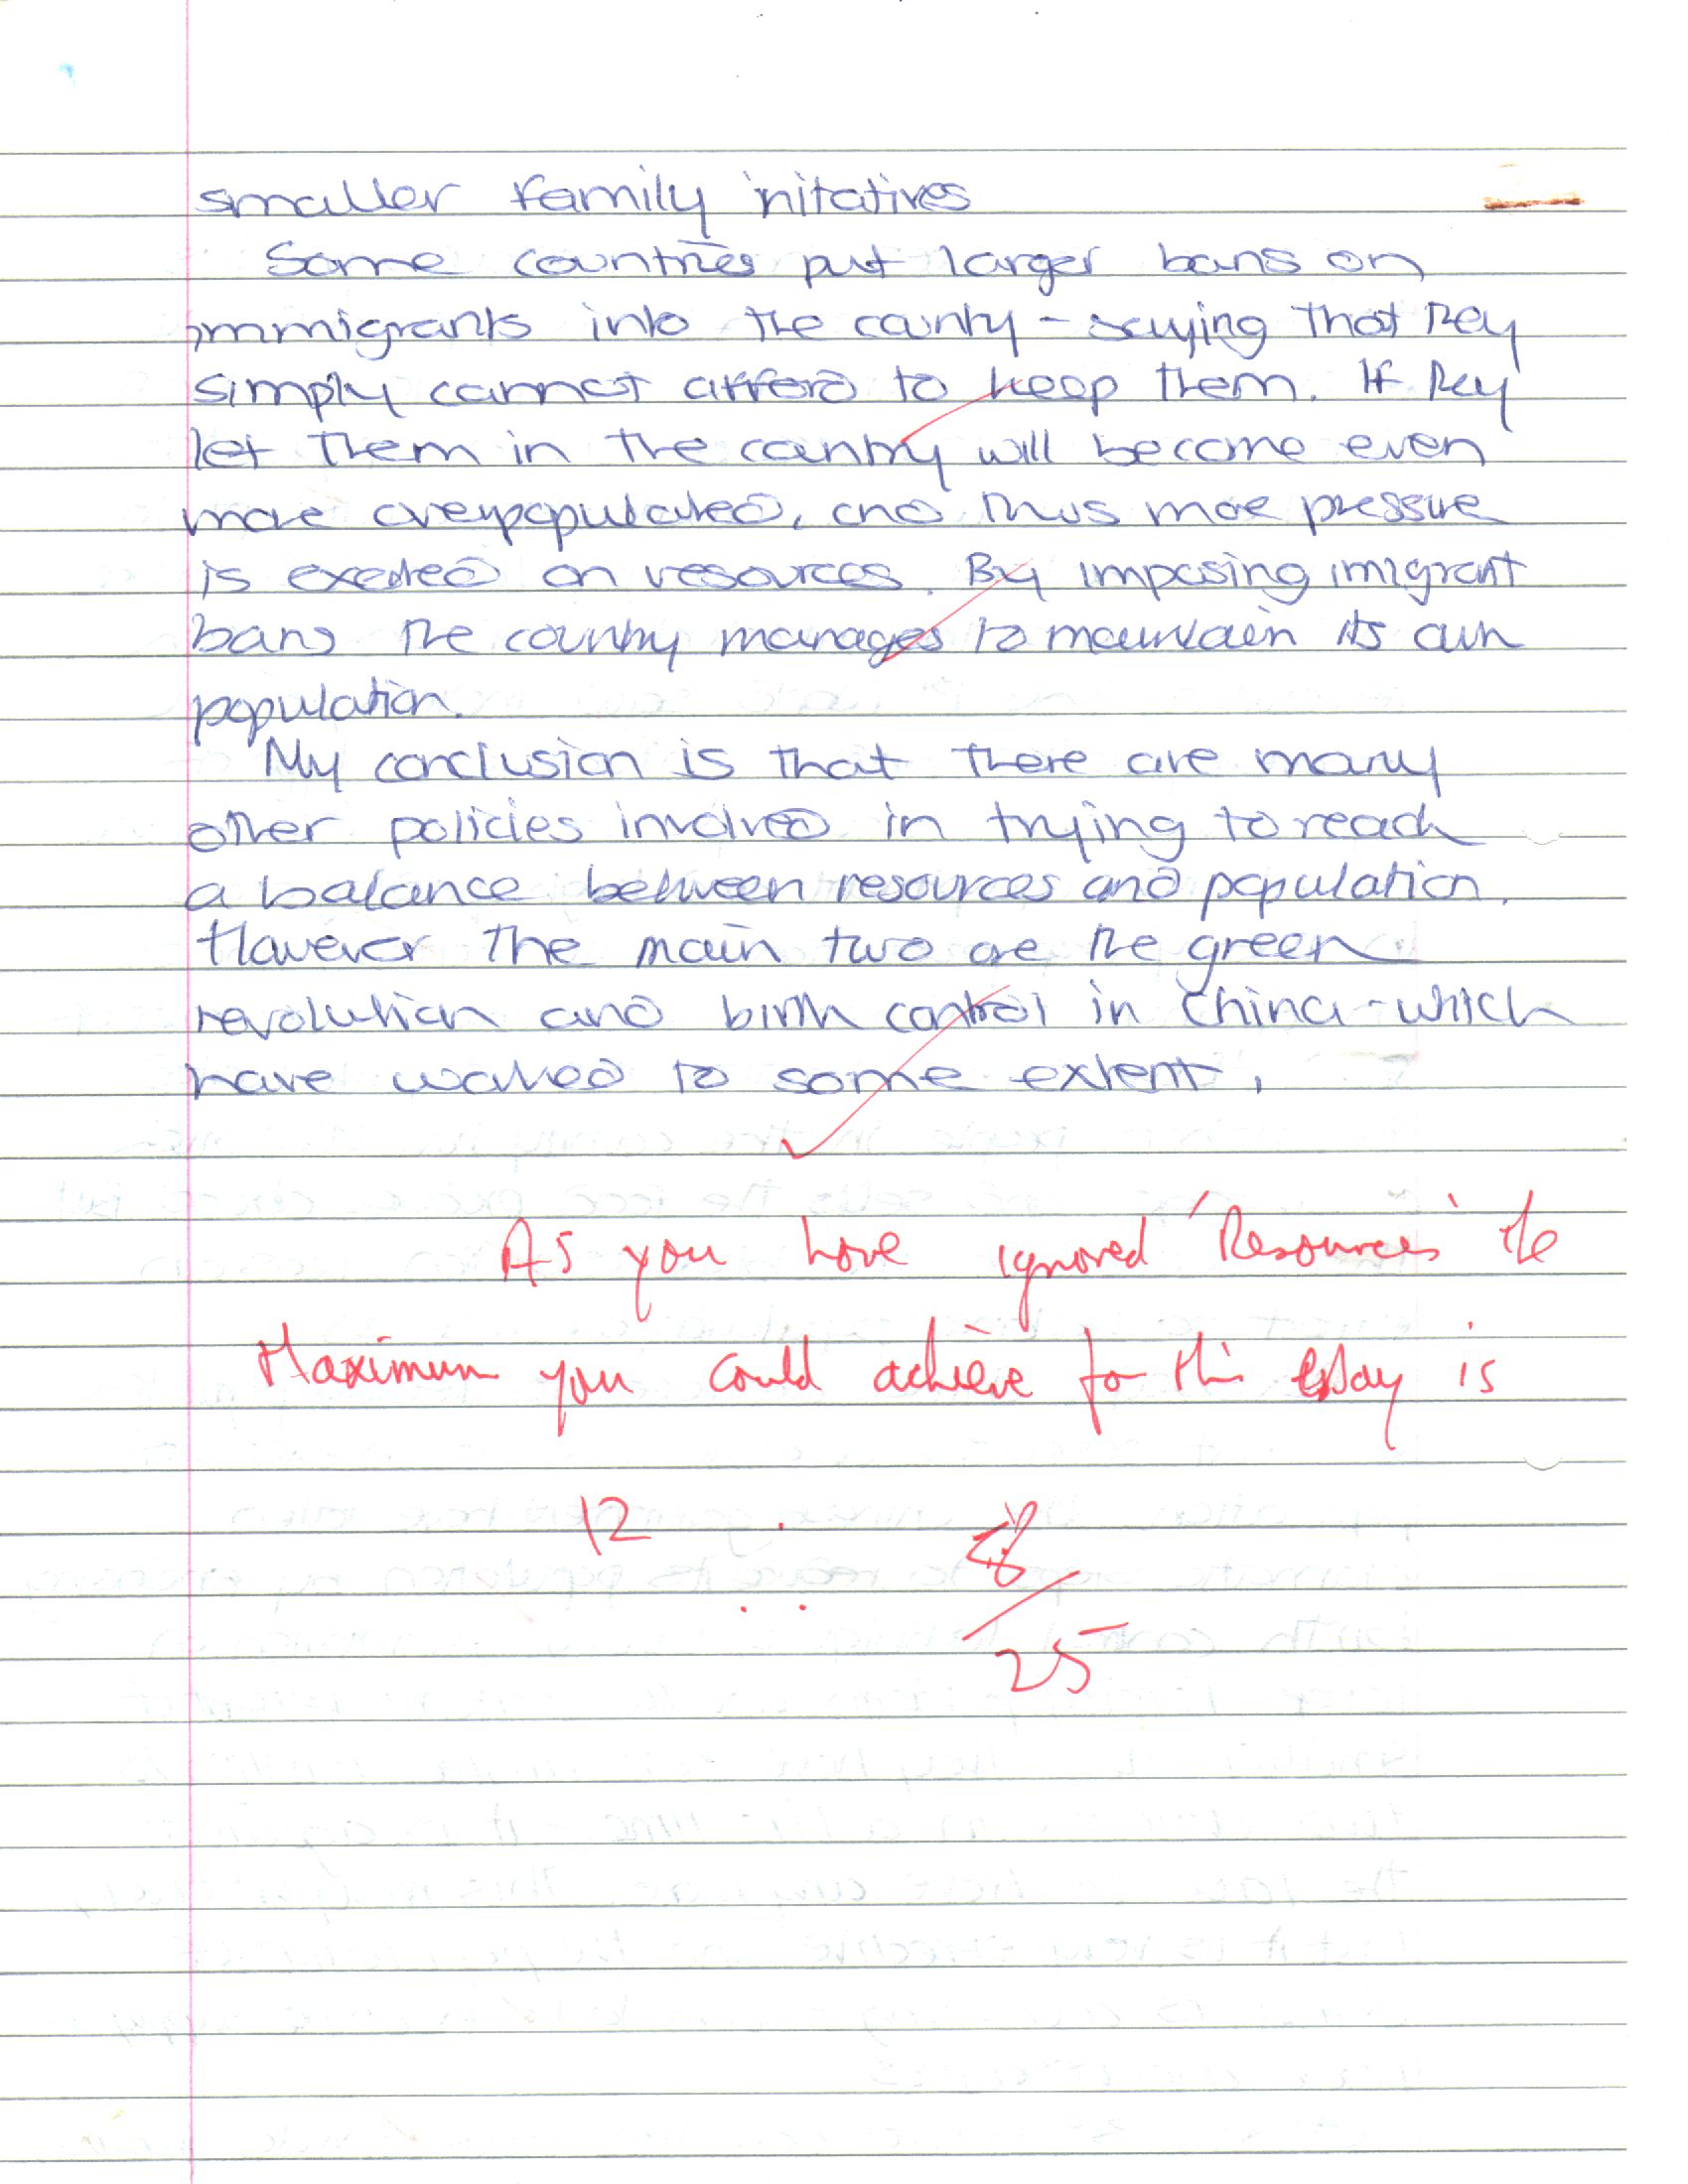 smaller family initatives
Some countries put larger bans on
immigrants into the county - saying that they
simply cannot afford to keep them. If they
let them in the country will become even
more overpopulated, and thus more pressure
is exerted on resources. By imposing imigrant
bans the country manages to maintain its own
population.
My conclusion is that there are many
other policies involved in trying to reach
a balance between resources and population.
However the main two are the green
revolution and birth control in China - which
have worked to some extent.
As you have ignored 'Resources' the
Maximum you could achieve for this essay is
12
8
25